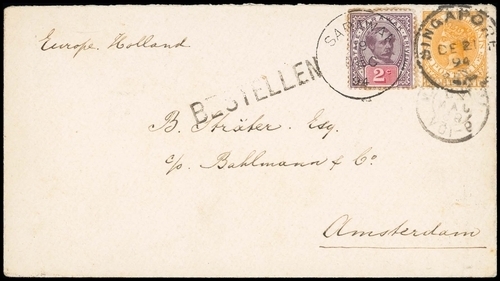 Europe, Holland
SARAWAK
DEC
94
2c
SINGAPORE
DE 21
94
BESTELLEN
B. Sträter. Esq.
c/o. Bahlmann & Co.
Amsterdam